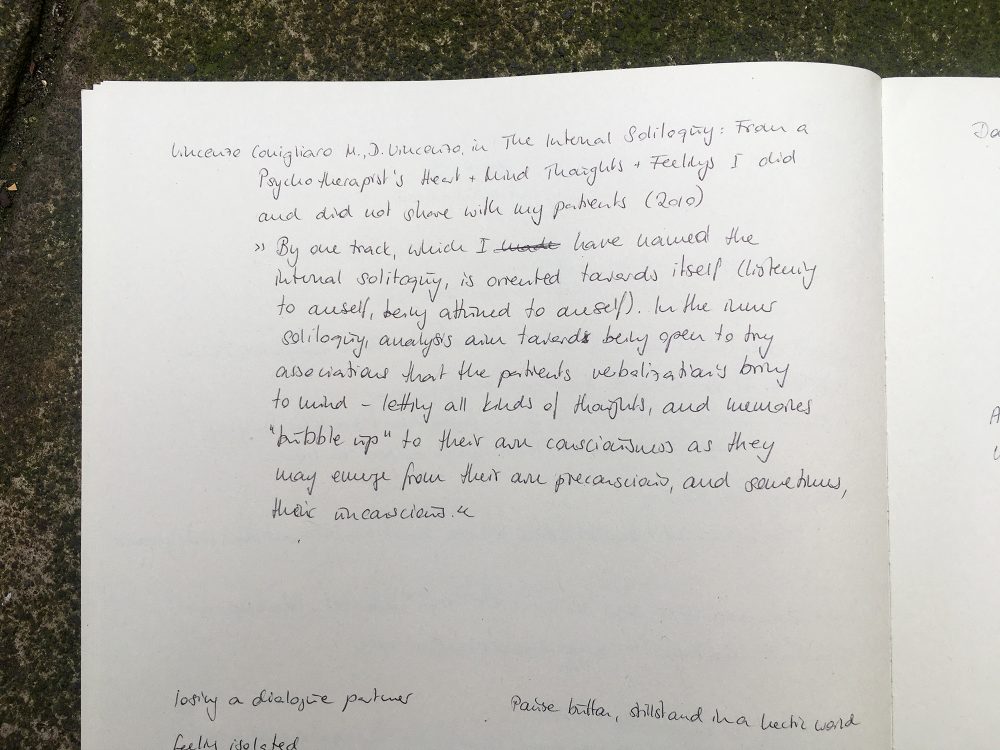 Vincenzo Conigliaro M.,D. Vincenzo. in The Internal Soliloquy: From a
Psychotherapist's Heart + Mind Thoughts + Feelings I did
and did not share with my patients (2010)
» By one track, which I made have named the
internal soliloquy, is oriented towards itself (listening
to oneself, being attuned to oneself). In the inner
soliloquy, analysts aim towards being open to any
associations that the patients verbalization's bring
to mind – letting all kinds of thoughts, and memories
"bubble up" to their own consciousness as they
may emerge from their own preconscious, and sometimes,
their unconscious.«
losing a dialogue partner
Pause button, stillstand in a hectic world
feeling isolated